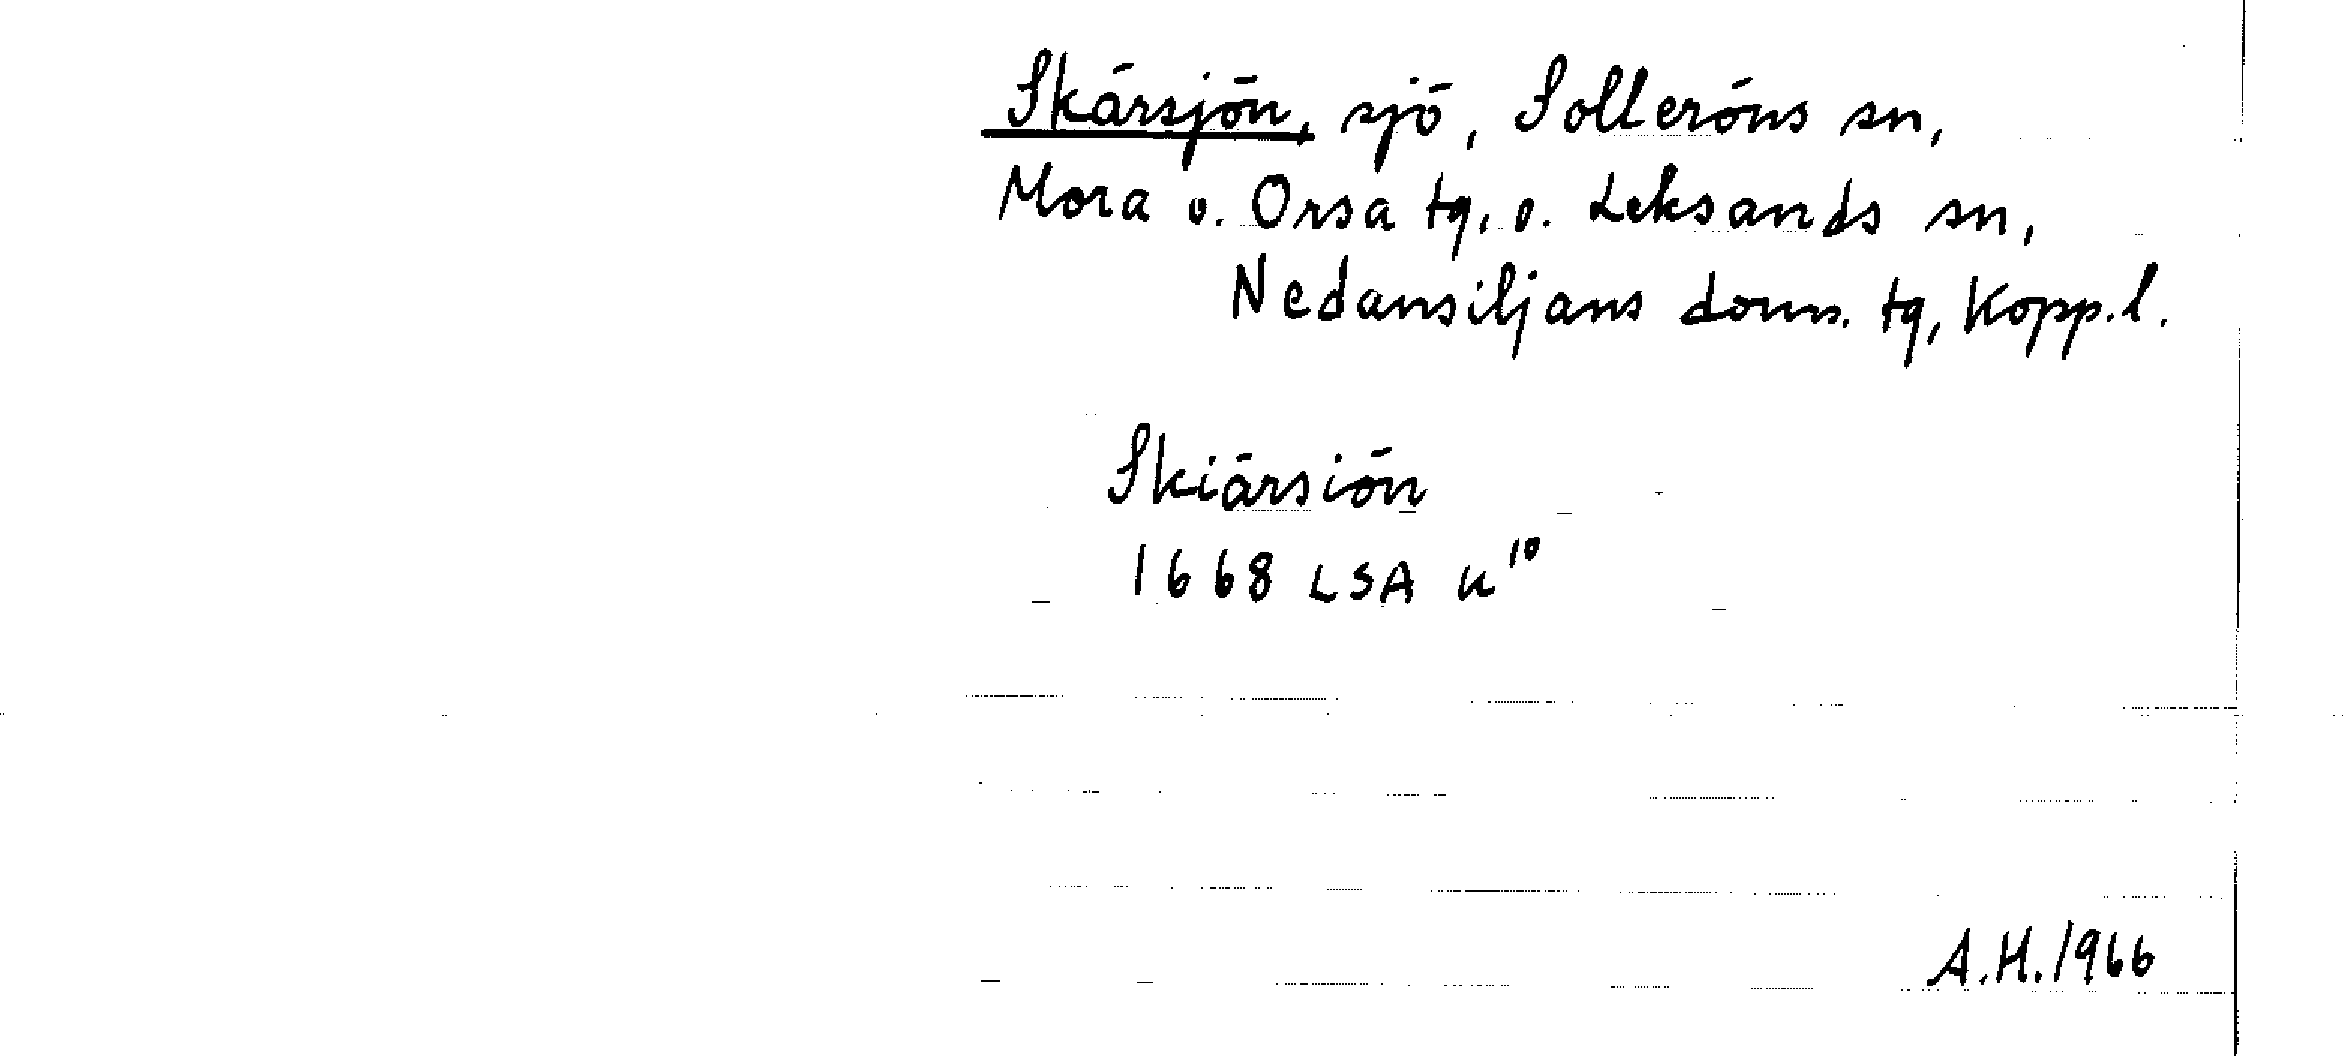 Skärsjön, sjö, Solleröns sn,
Mora o. Orsa tg, o. Leksands sn,
Nedansiljans doms. tg, Kopp.l.
Skiärsiön
1668 LSA U¹⁰
A.H. 1966